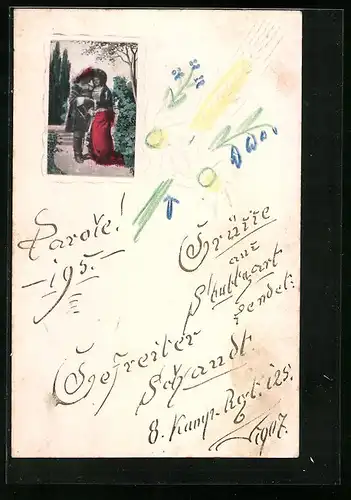 Parole!
195.
Grüsse
aus
Stuttgart
sendet:
Gefreiter
Schandt.
8. Komp. Regt. 125.
1907.